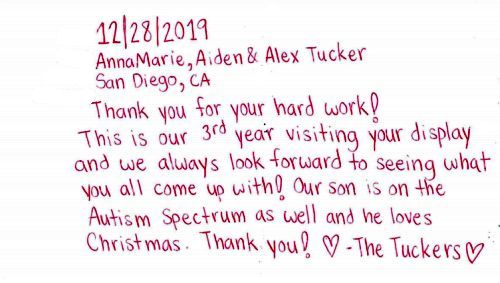 12/28/2019
AnnaMarie, Aiden & Alex Tucker
San Diego, CA
Thank you for your hard work!
This is our 3rd year visiting your display
and we always look forward to seeing what
you all come up with! Our son is on the
Autism Spectrum as well and he loves
Christmas. Thank you! ♡ -The Tuckers♡